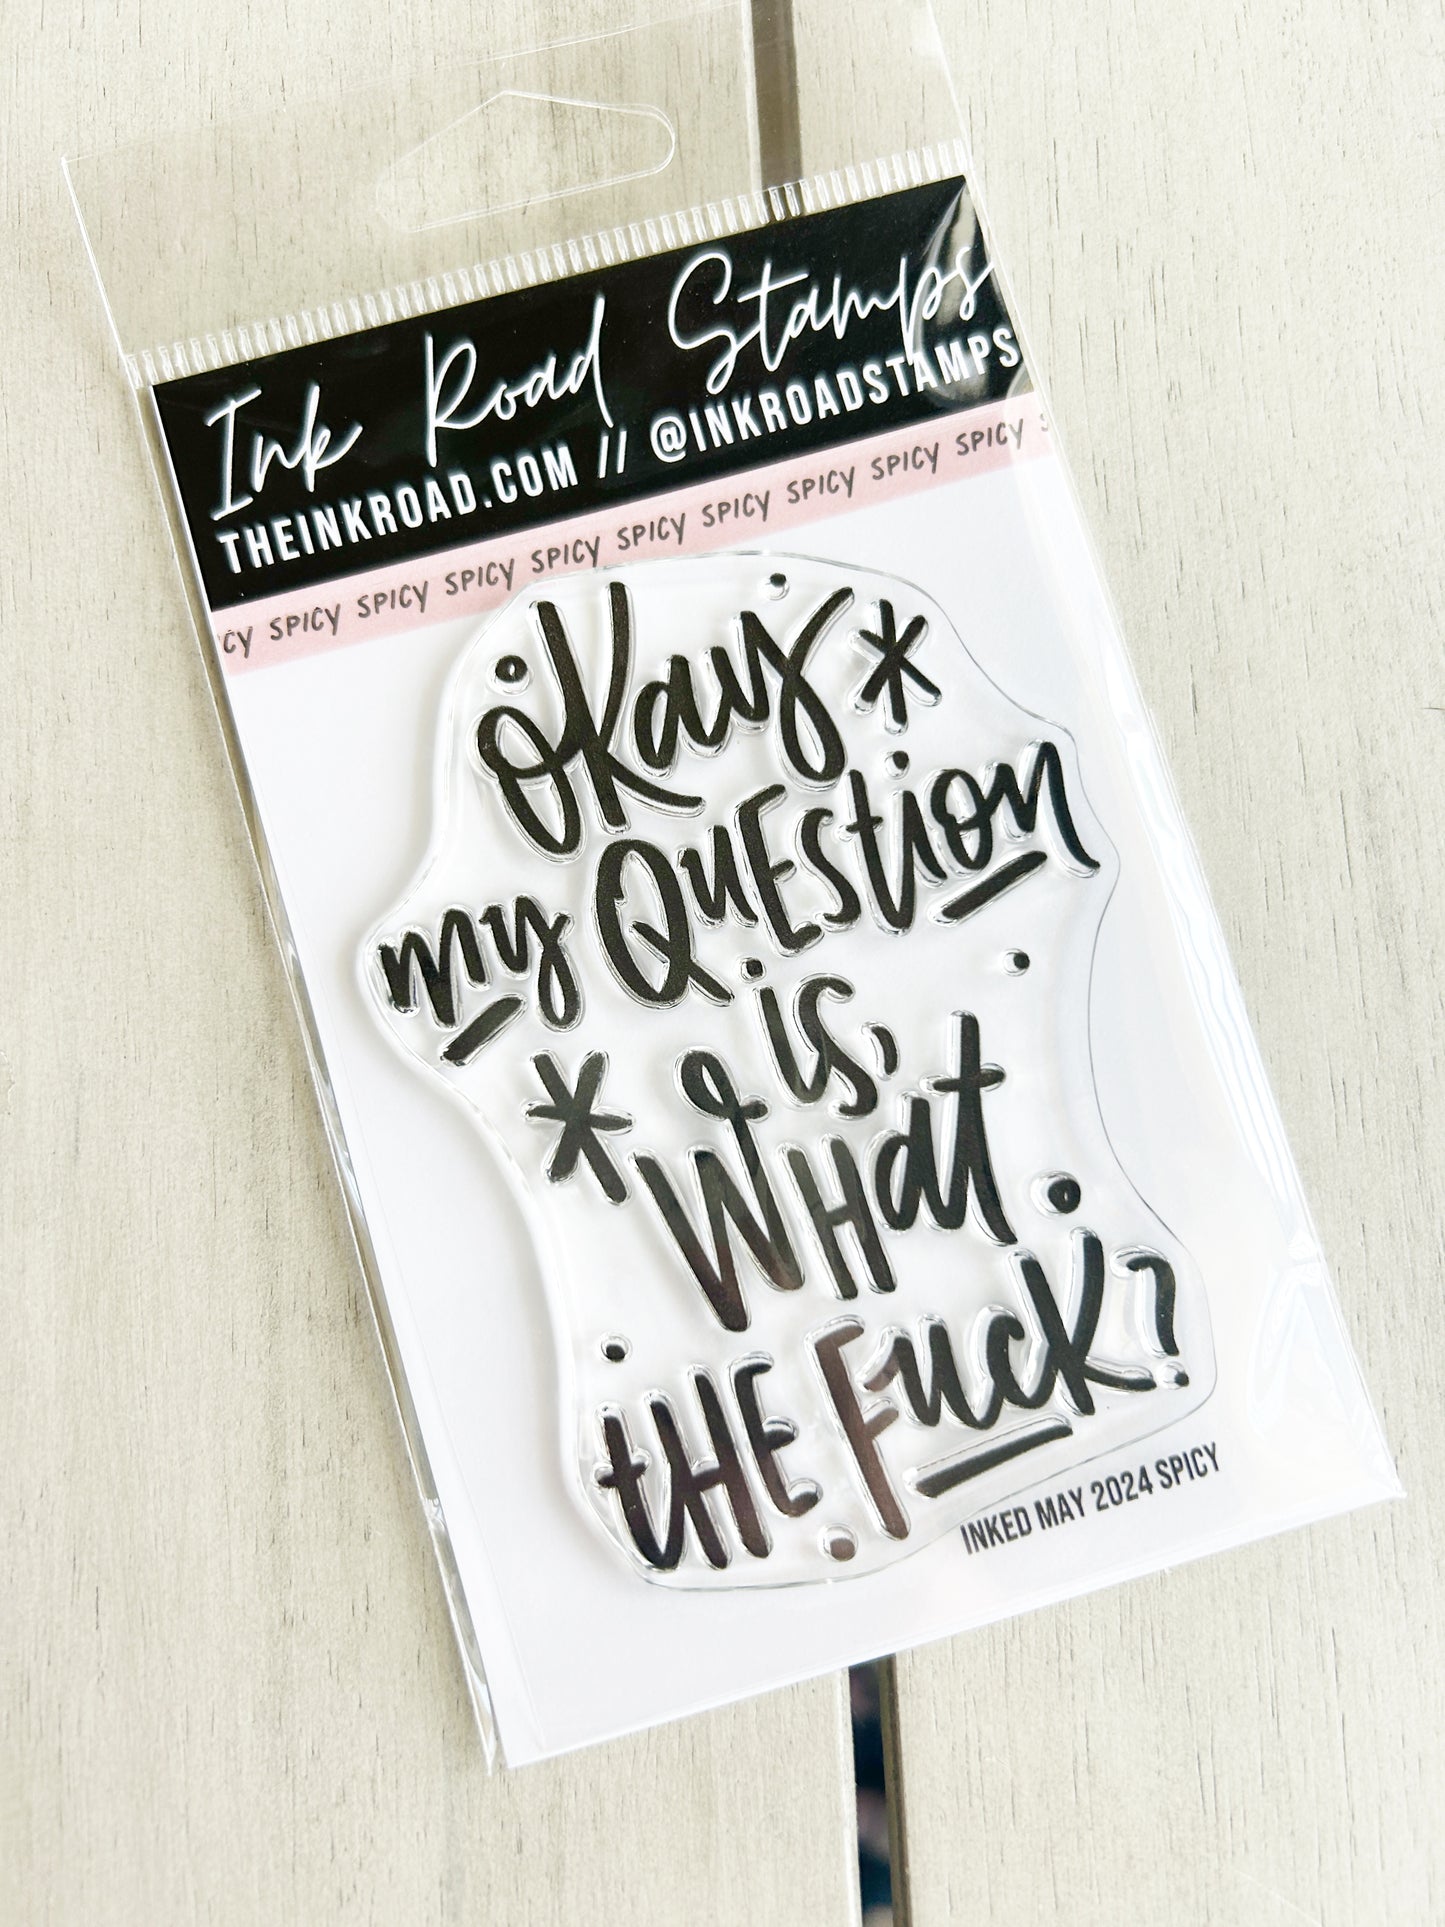 Ink Road Stamps
THEINKROAD.COM // @INKROADSTAMPS
CY SPICY SPICY SPICY SPICY SPICY SPICY SPICY SPICY S
okay
my QuEstion
is,
WHat
tHE Fuck?
INKED MAY 2024 SPICY